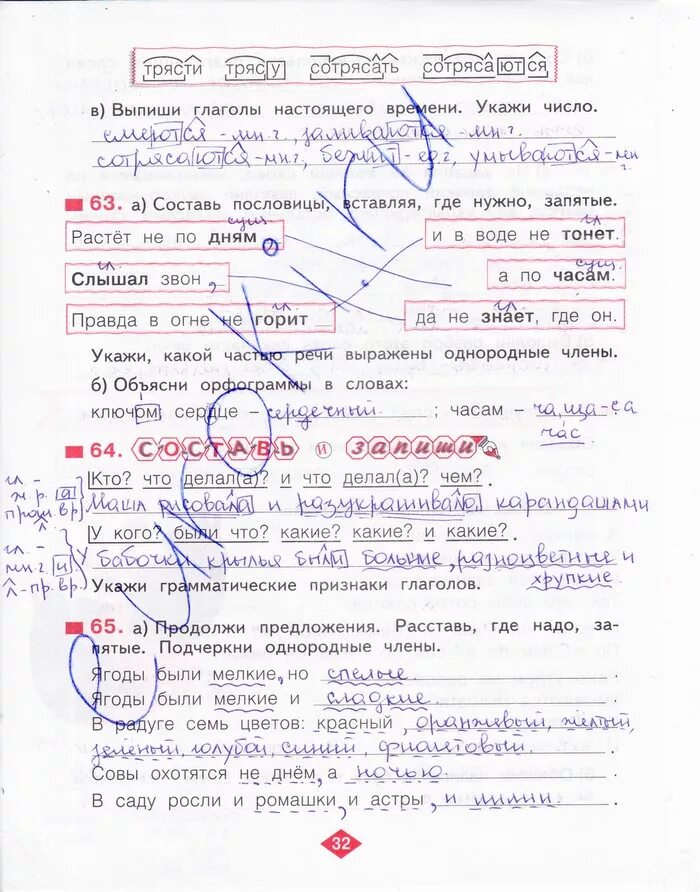 трясти трясу сотрясать сотрясаются
в) Выпиши глаголы настоящего времени. Укажи число.
смеются - мн.ч, заливаются - мн.ч.
сотрясаются - мн.ч, бежит - ед.ч, умываются - мн.ч.
63. а) Составь пословицы, вставляя, где нужно, запятые.
сущ. гл.
Растёт не по дням, и в воде не тонет.
гл. сущ.
Слышал звон, а по часам.
гл. гл.
Правда в огне не горит да не знает, где он.
Укажи, какой частью речи выражены однородные члены.
б) Объясни орфограммы в словах:
ключом сердце – сердечный ; часам – ча, ща - а
час
64. СОСТАВЬ И запиши
гл. -
Кто? что делал(а)? и что делал(а)? чем?
ж.р. а
прош.вр.
Маша рисовала и разукрашивала карандашами
У кого? были что? какие? какие? и какие?
гл. -
мн.ч и
л - пр. вр.
У бабочки крылья были большие, разноцветные и
хрупкие
Укажи грамматические признаки глаголов.
65. а) Продолжи предложения. Расставь, где надо, за-
пятые. Подчеркни однородные члены.
Ягоды были мелкие, но спелые.
Ягоды были мелкие и сладкие.
В радуге семь цветов: красный, оранжевый, жёлтый,
зелёный, голубой, синий, фиолетовый.
Совы охотятся не днём, а ночью.
В саду росли и ромашки, и астры, и лилии.
32